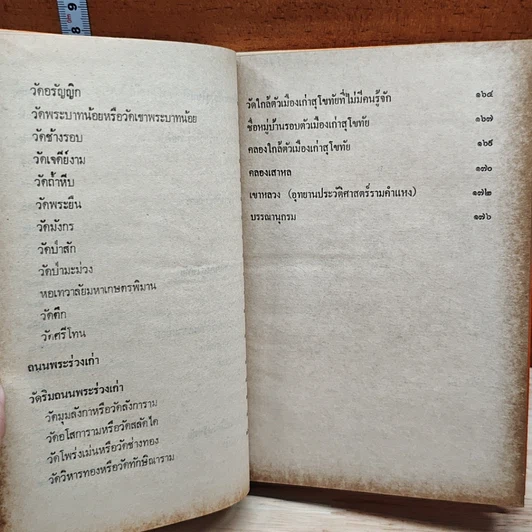 วัดอรัญญิก
วัดพระบาทน้อยหรือวัดเขาพระบาทน้อย
วัดช้างรอบ
วัดเจดีย์งาม
วัดถ้ำหีบ
วัดพระยืน
วัดมังกร
วัดป่าสัก
วัดป่ามะม่วง
หอเทวาลัยมหาเกษตรพิมาน
วัดตึก
วัดศรีโทน
ถนนพระร่วงเก่า
วัดริมถนนพระร่วงเก่า
วัดมุมลังกาหรือวัดลังการาม
วัดอโสการามหรือวัดสลัดได
วัดโพร่งเม่นหรือวัดช่างทอง
วัดวิหารทองหรือวัดทักษิณาราม
วัดใกล้ตัวเมืองเก่าสุโขทัยที่ไม่มีคนรู้จัก ๑๖๔
ชื่อหมู่บ้านรอบตัวเมืองเก่าสุโขทัย ๑๖๗
คลองใกล้ตัวเมืองเก่าสุโขทัย ๑๖๙
คลองเสาหอ ๑๗๐
เขาหลวง (อุทยานประวัติศาสตร์รามคำแหง) ๑๗๒
บรรณานุกรม ๑๗๖